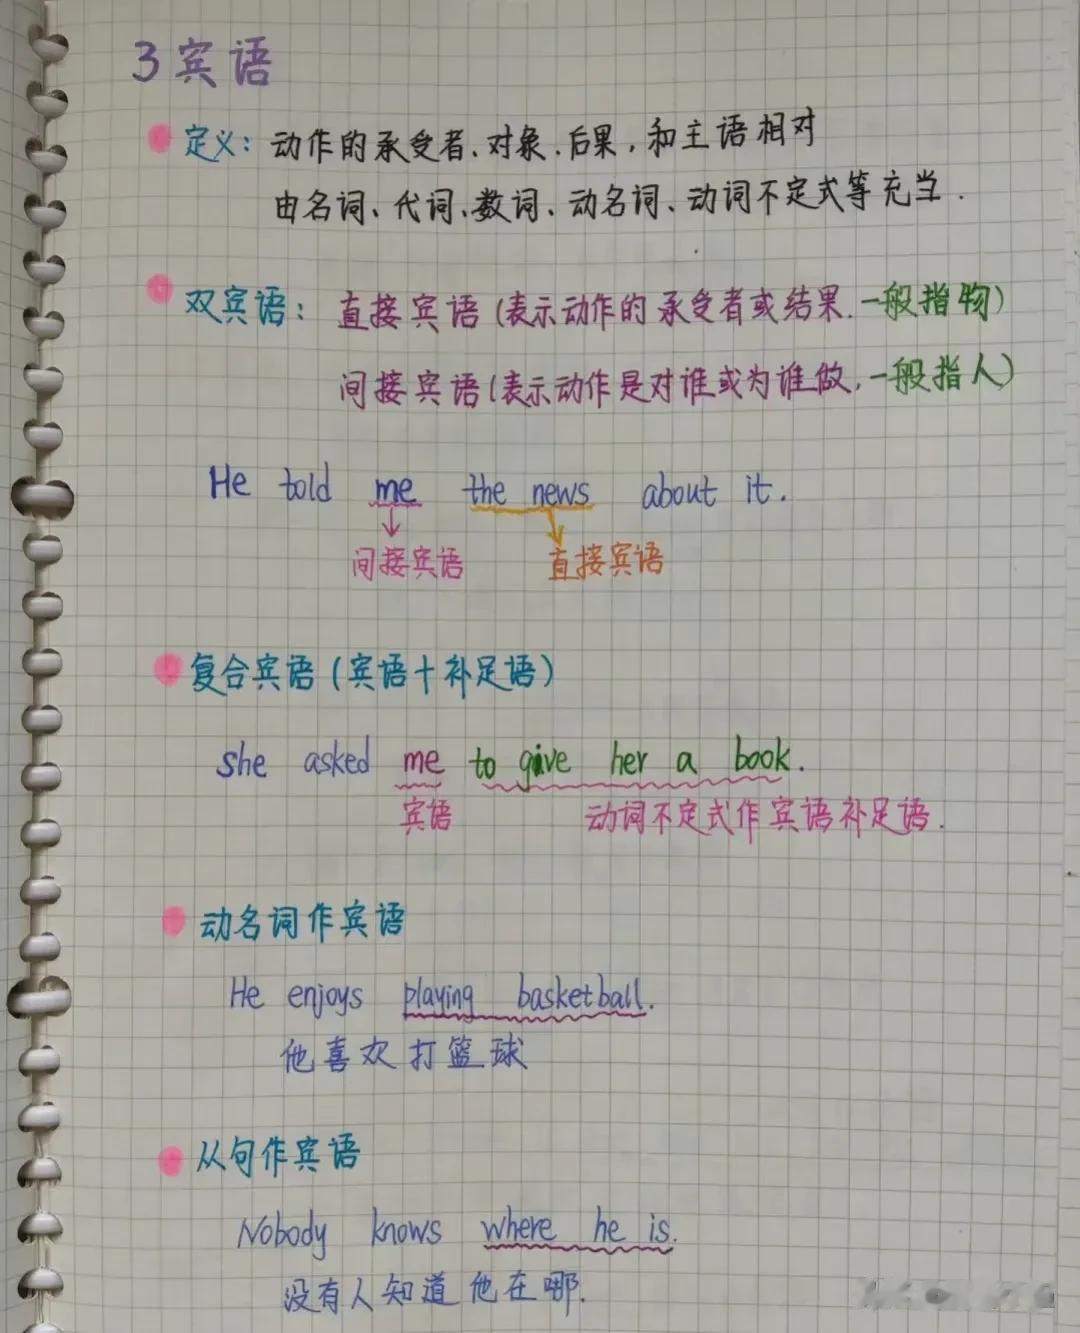 3 宾语
定义: 动作的承受者、对象、后果,和主语相对
由名词、代词、数词、动名词、动词不定式等充当.
双宾语: 直接宾语(表示动作的承受者或结果.一般指物)
间接宾语(表示动作是对谁或为谁做,一般指人)
He told me the news about it.
间接宾语 直接宾语
复合宾语(宾语+补足语)
she asked me to give her a book.
宾语 动词不定式作宾语补足语.
动名词作宾语
He enjoys playing basketball.
他喜欢打篮球
从句作宾语
Nobody knows where he is.
没有人知道他在哪.